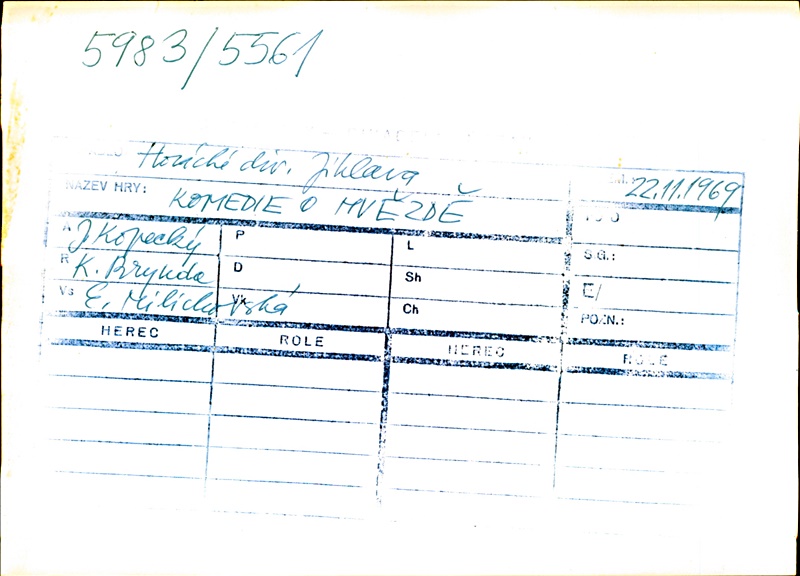 5983/5561
Horácké div. Jihlava
22.11.1969
NÁZEV HRY: KOMEDIE O HVĚZDĚ
A J Kopecký P L SG.:
R K. Brynda D Sh E/
Vs E. Milichovská Vk Ch POZN.:
HEREC ROLE HEREC ROLE